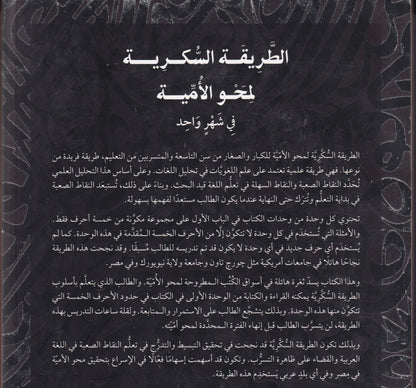 الطَّرِيقَة السُّكَّرِيـة
لِمَحْو الأُمِّيـة
فِي شَهْرٍ وَاحِد
الطريقة السُّكَّريَّة لمحو الأمِّيَّة للكبار والصغار من سن التاسعة والمتسربين من التعليم، طريقة فريدة من
نوعها. فهي طريقة علمية تعتمد على علم اللغويَّات في تحليل اللغات. وعلى أساس هذا التحليل العلمي
تُحَدَّد النقاط الصعبة والنقاط السهلة في تعلُّم اللغة قيد البحث. وبناءً على ذلك، تُستبعَد النقاط الصعبة
في بداية التعلُّم وتُترَك حتى النهاية عندما يكون الطالب مستعدًا لفهمها بسهولة.
تحتوي كل وحدة من وحدات الكتاب في الباب الأول على مجموعة مكوَّنة من خمسة أحرف فقط.
والأمثلة التي تُستخدَم في كل وحدة لا تتكوَّن إلَّا من الأحرف الخمسة المُقدَّمة في هذه الوحدة. كما لم
يُستخدَم أي حرف جديد في أي وحدة لا يكون قد تم تدريسه للطالب مُسبقًا. وقد نجحت هذه الطريقة
نجاحًا هائلًا في جامعات أمريكية مثل چورچ تاون وجامعة ولاية نيويورك وفي مصر.
وهذا الكتاب يسدّ ثغرة هائلة في أسواق الكُتُب المطروحة لمحو الأمِّيَّة. والطالب الذي يتعلَّم بأسلوب
الطريقة السُّكَّريَّة يمكنه القراءة والكتابة من الوحدة الأولى في الكتاب في حدود الأحرف الخمسة التي
تتكوَّن منها هذه الوحدة. وبذلك يتشجَّع الطالب على الاستمرار والمتابعة. ولقلة ساعات التدريس بهذه
الطريقة، لن يتسرَّب الطالب قبل إنهاء الفترة المحدَّدة لمحو أمِّيَّته.
وبذلك تكون الطريقة السُّكَّريَّة قد نجحت في تحقيق التبسيط والتدرُّج في تعلُّم النقاط الصعبة في اللغة
العربية والقضاء على ظاهرة التسرُّب. وتكون قد أسهمت إسهامًا فعَّالًا في الإسراع بتحقيق محو الأمية
في مصر وفي أي بلدٍ عربي يَستخدِم هذه الطريقة.